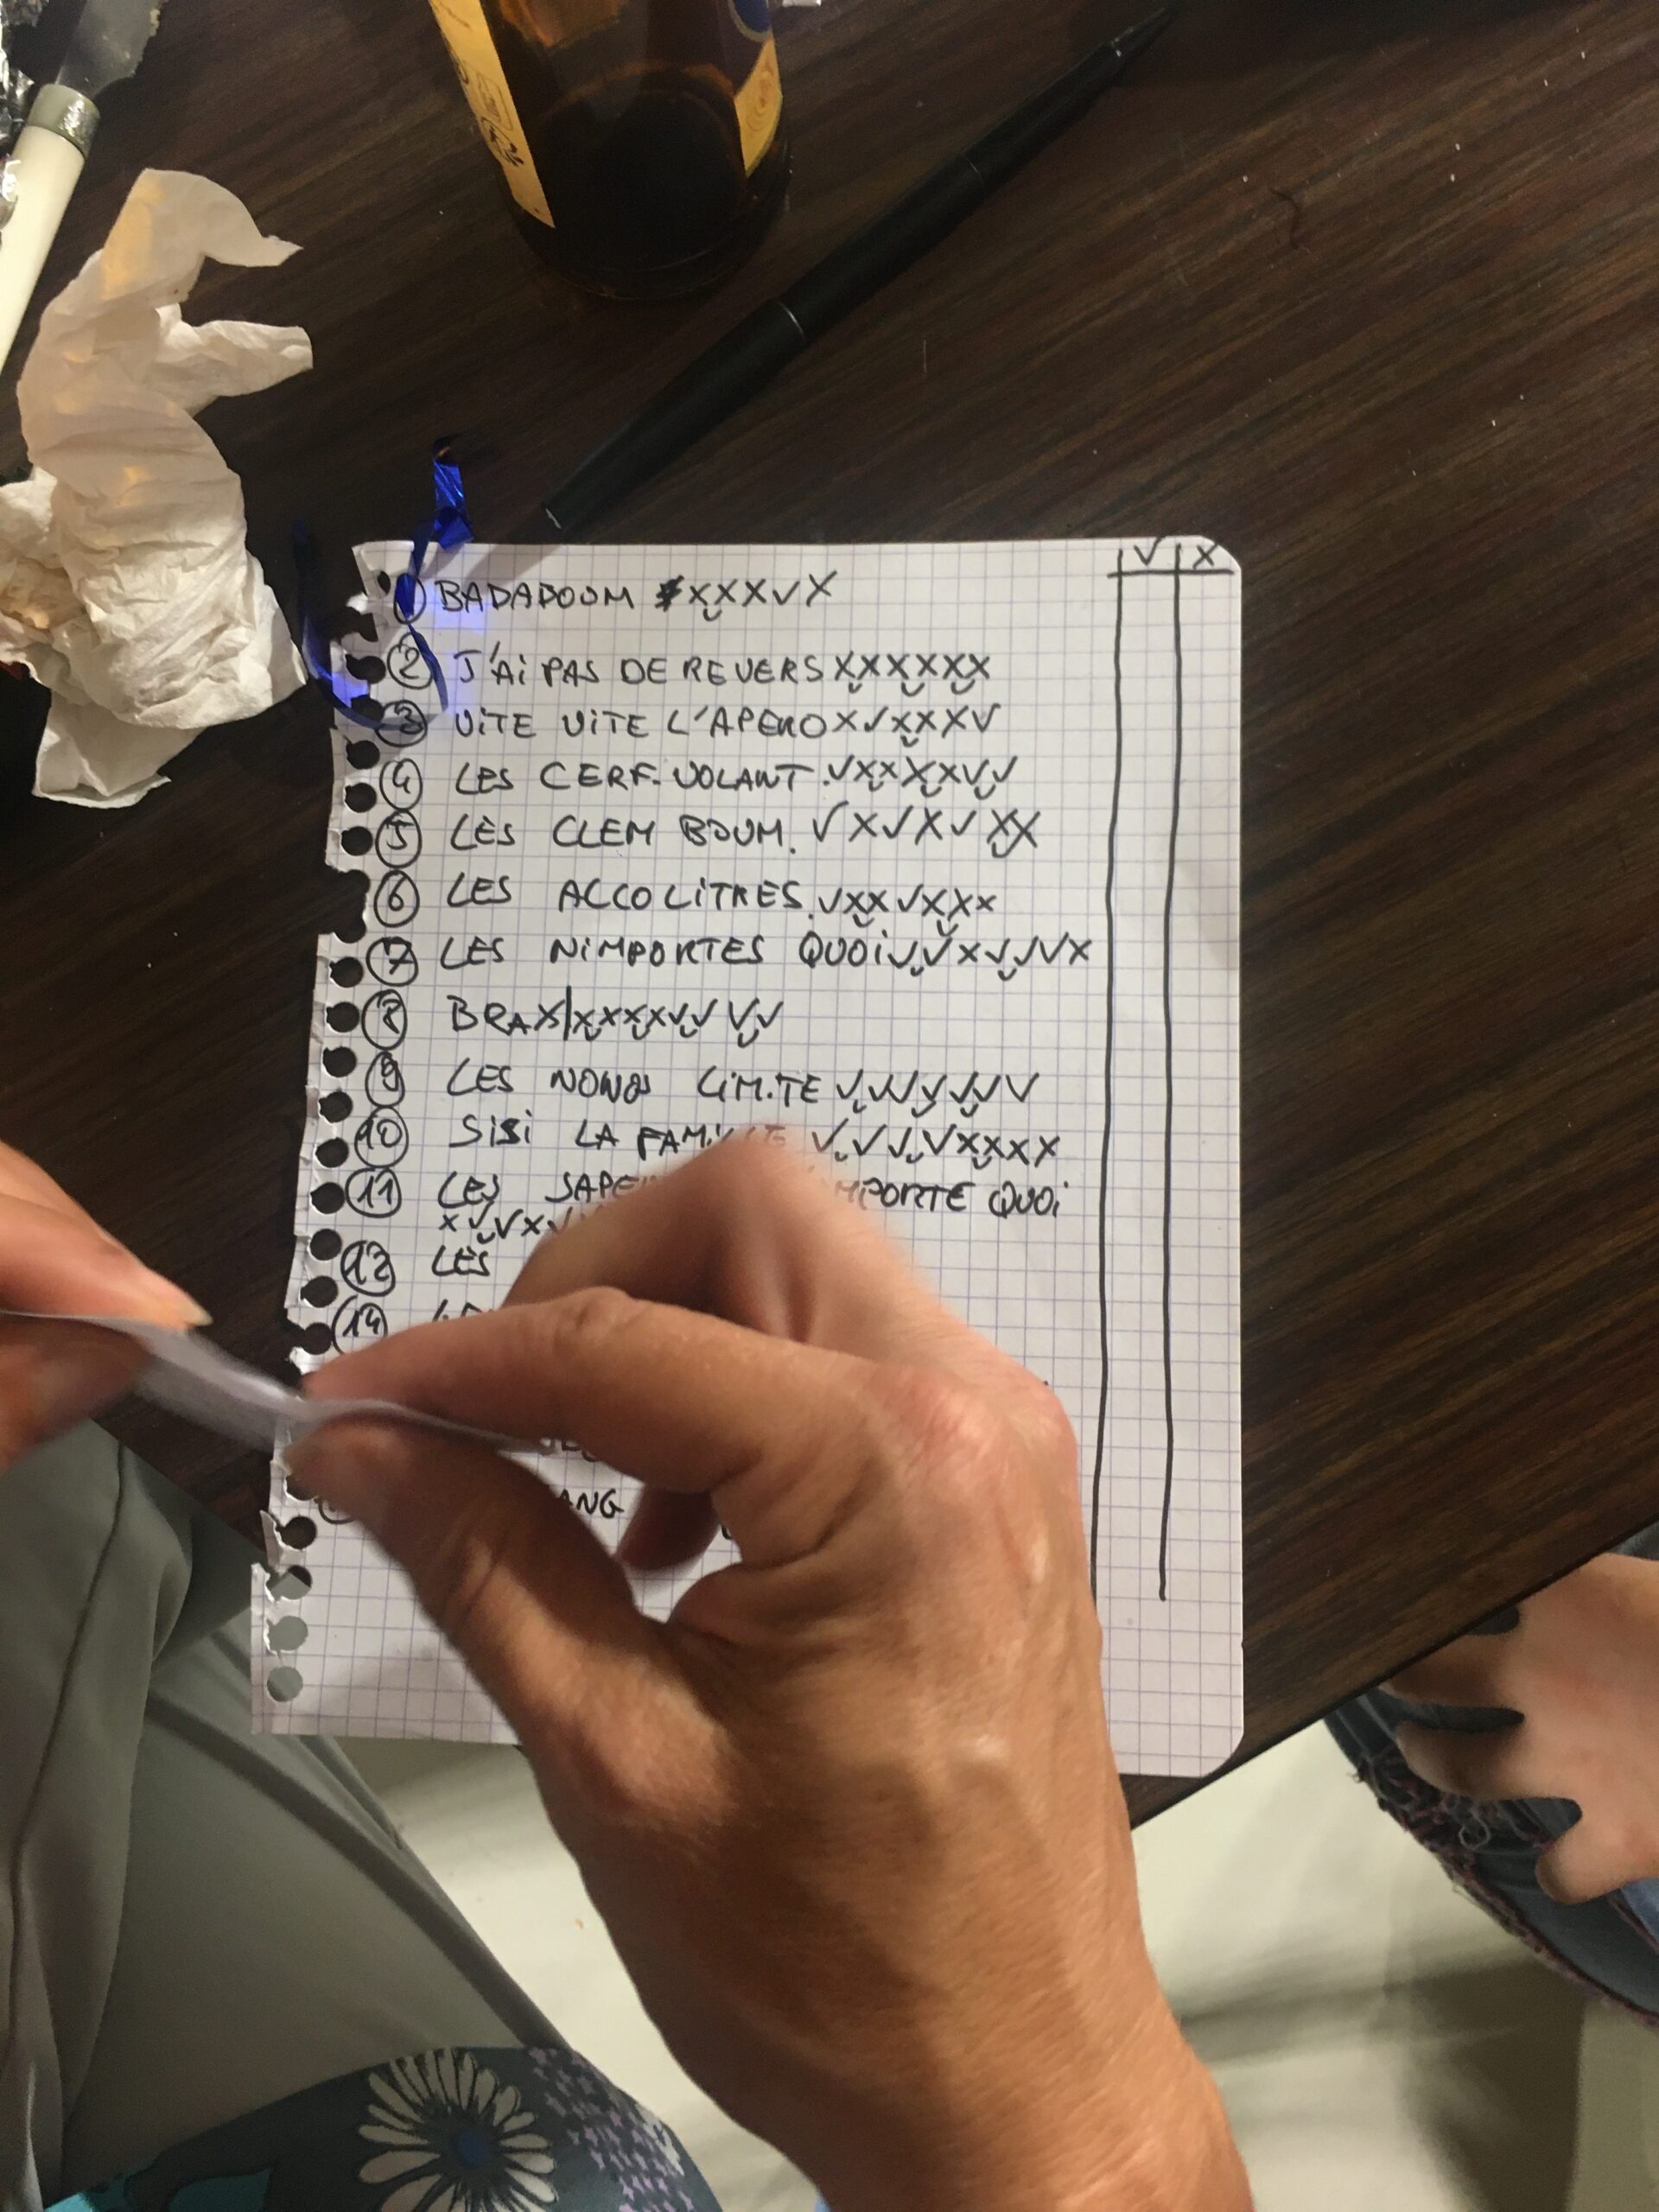 √ X
① BADABOUM XXX√X
② J'Ai PAS DE REVERS XXXXXX
③ ViTE ViTE L'APERO X√XXX√
④ LES CERF-VOLANT. √XXXX√√
⑤ LES CLEM BOUM. √X√X√XX
⑥ LES ACCOLiTRES. √XX√XXX
⑦ LES NiMPORTES QUOi √√X√√√X
⑧ BRAX XXXX√√√√
⑨ LES LiMiTE √√√√√√√
⑩ SiSi LA FAMiLLE √√√√XXXX
⑪ LES QUOi
X√√X√
LES
⑭
ANG